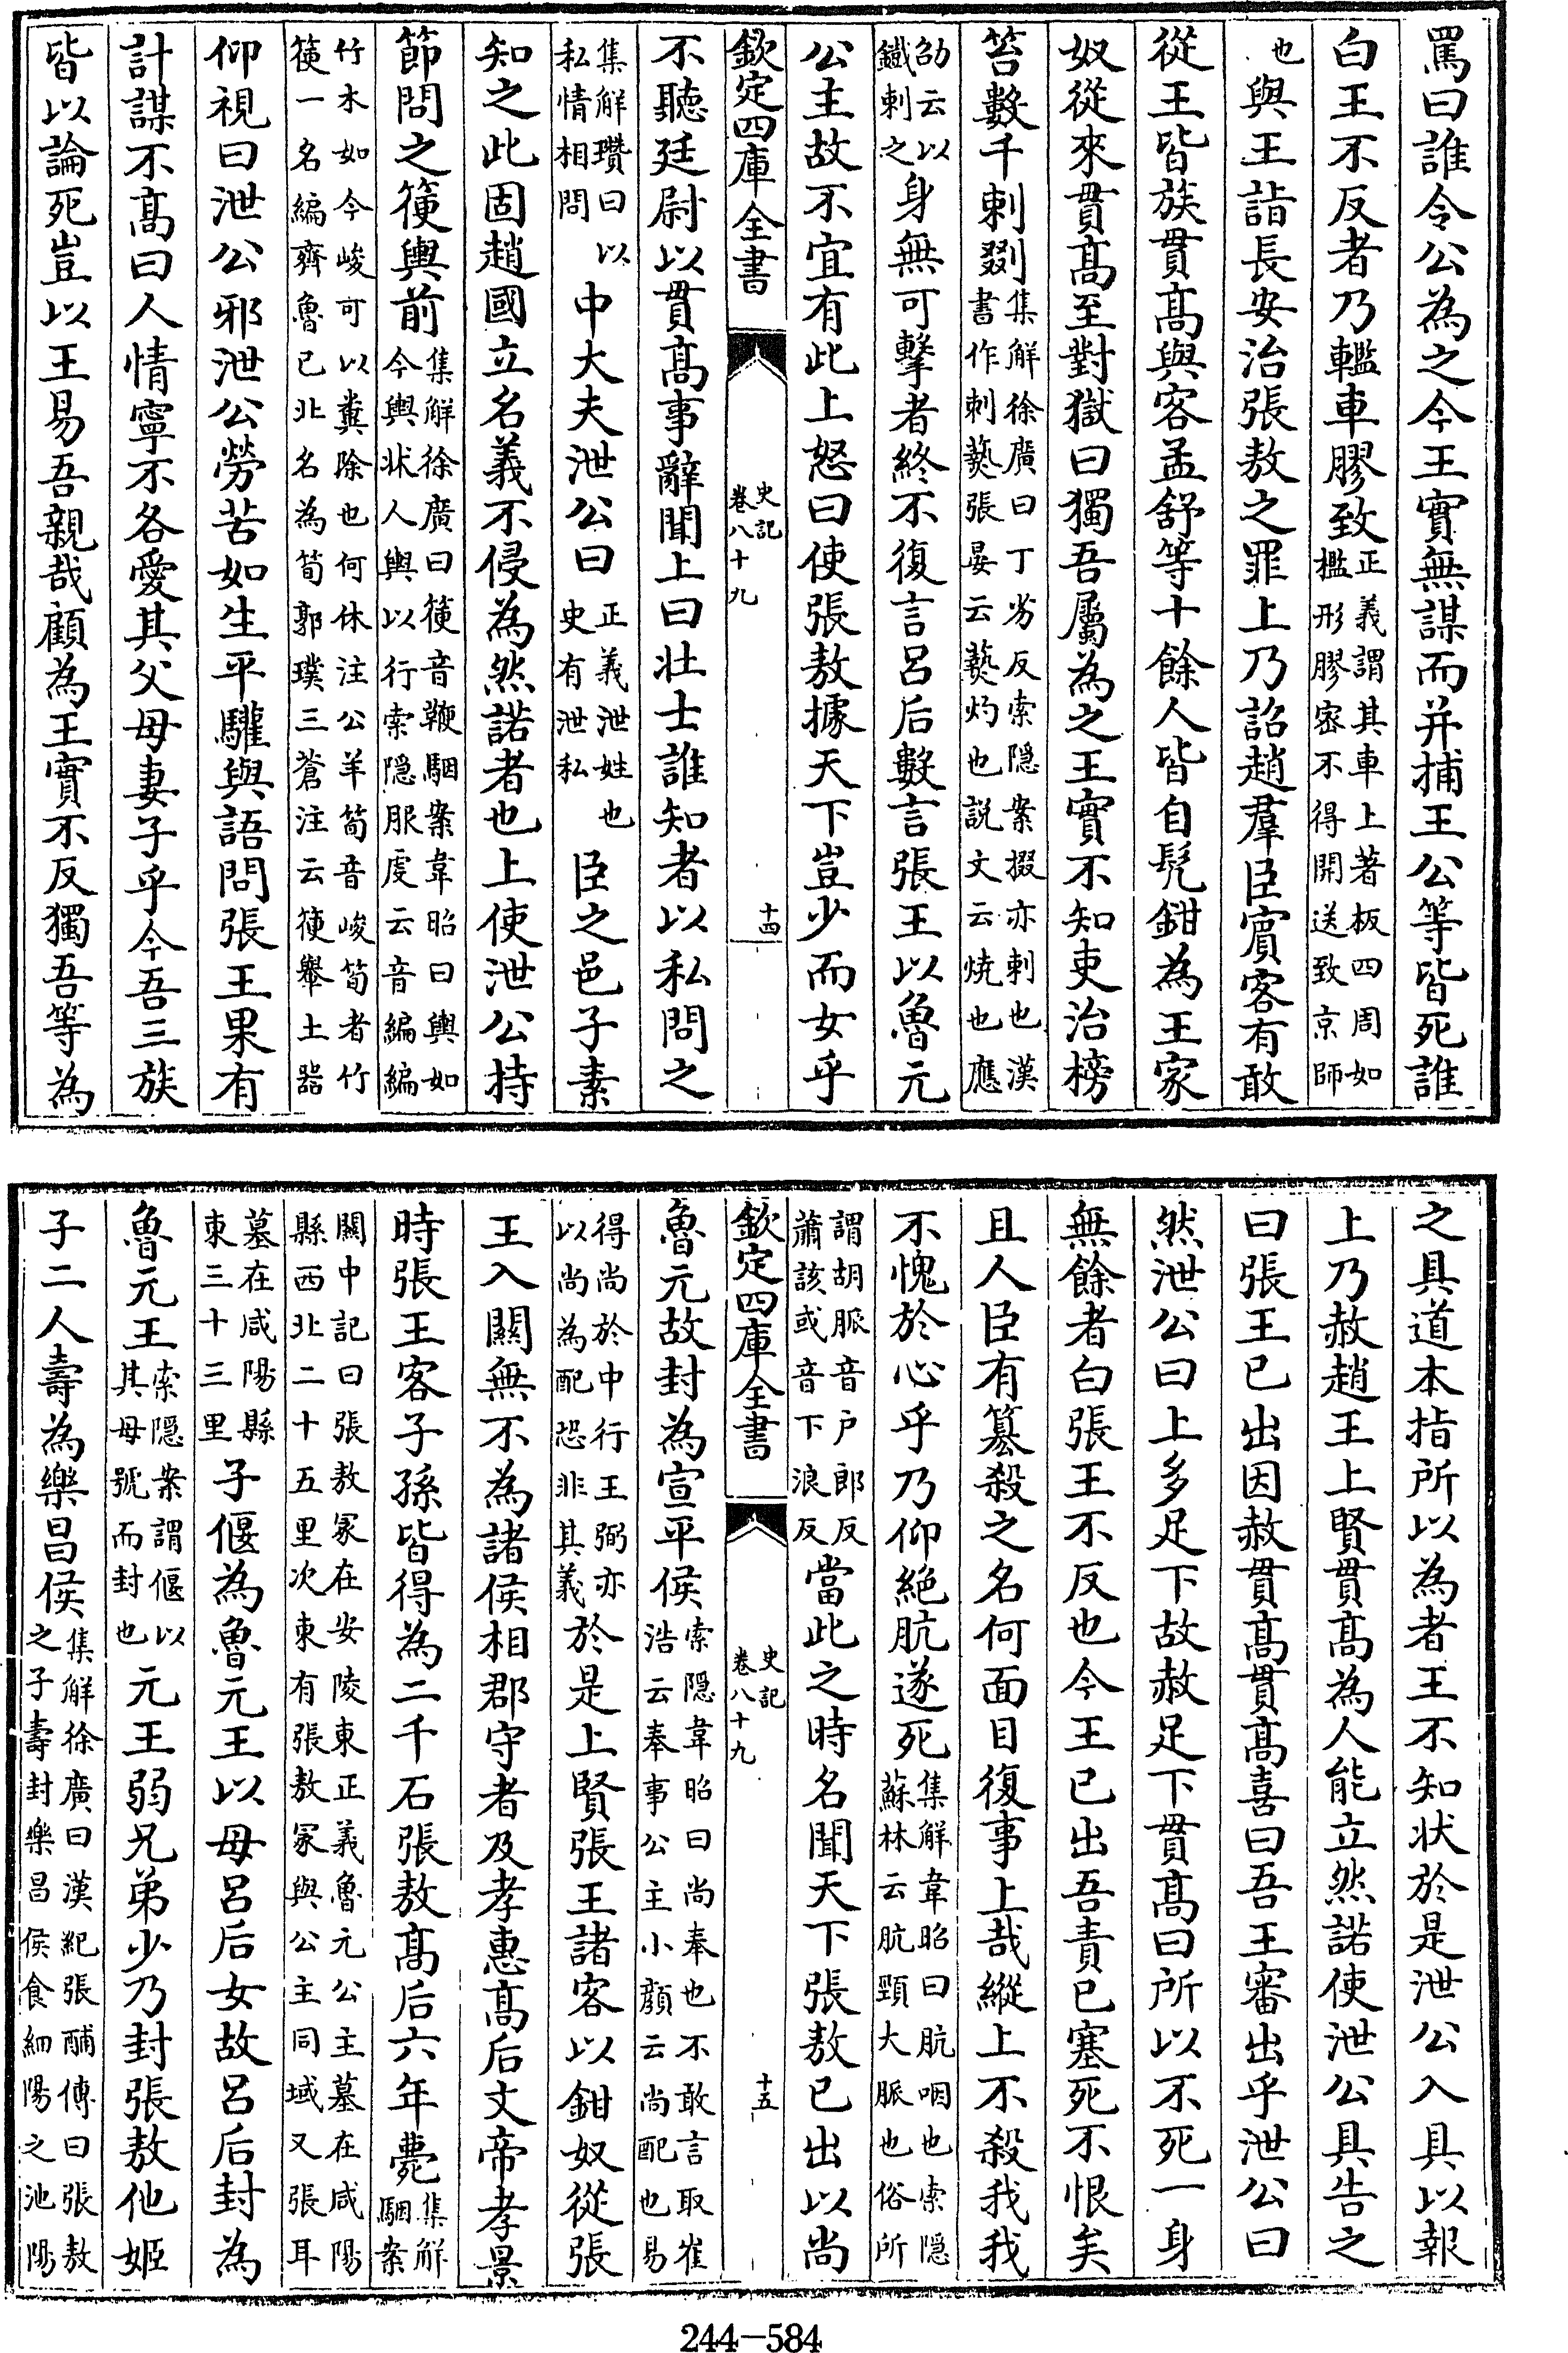 罵曰誰令公為之今王實無謀而并捕王公等皆死誰
白王不反者乃轞車膠致正義謂其車上著板四周如檻形膠宻不得開送致京師
也與王詣長安治張敖之罪上乃詔趙羣臣賔客有敢
從王皆族貫髙與客孟舒等十餘人皆自髠鉗為王家
奴從來貫髙至對獄曰獨吾屬為之王實不知吏治榜
笞數千刺剟集解徐廣曰丁劣反索隠案掇亦刺也漢書作刺爇張晏云爇灼也説文云焼也應
劭云以鐡刺之身無可擊者終不復言吕后數言張王以魯元
公主故不宜有此上怒曰使張敖據天下豈少而女乎
欽定四庫全書 史記卷八十九 十四
不聽廷尉以貫髙事辭聞上曰壮士誰知者以私問之
集解瓚曰以私情相問中大夫泄公曰正義泄姓也史有泄私臣之邑子素
知之此固趙國立名義不侵為然諾者也上使泄公持
節問之箯輿前集解徐廣曰箯音鞭駰案韋昭曰輿如今輿牀人輿以行索隠服䖍云音編編
竹木如今峻可以糞除也何休注公羊筍音峻筍者竹箯一名編齊魯已北名為筍郭璞三蒼注云箯轝土器
仰視曰泄公邪泄公勞苦如生平驩與語問張王果有
計謀不髙曰人情寧不各愛其父母妻子乎今吾三族
皆以論死豈以王易吾親哉顧為王實不反獨吾等為
之具道本指所以為者王不知状於是泄公入具以報
上乃赦趙王上賢貫髙為人能立然諾使泄公具告之
曰張王已出因赦貫髙貫髙喜曰吾王審出乎泄公曰
然泄公曰上多足下故赦足下貫髙曰所以不死一身
無餘者白張王不反也今王已出吾責已塞死不恨矣
且人臣有簒殺之名何面目復事上哉縱上不殺我我
不愧於心乎乃仰絶肮遂死集解韋昭曰肮咽也索隠蘇林云肮頸大脈也俗所
謂胡脈音户郎反蕭該或音下浪反當此之時名聞天下張敖已出以尚
欽定四庫全書 史記卷八十九 十五
魯元故封為宣平侯索隠韋昭曰尚奉也不敢言取崔浩云奉事公主小顔云尚配也易
得尚於中行王弼亦以尚為配恐非其義於是上賢張王諸客以鉗奴從張
王入關無不為諸侯相郡守者及孝惠髙后文帝孝景
時張王客子孫皆得為二千石張敖髙后六年薨集解駰案
關中記曰張敖冢在安陵東正義魯元公主墓在咸陽縣西北二十五里次東有張敖冢與公主同域又張耳
墓在咸陽縣東三十三里子偃為魯元王以母吕后女故吕后封為
魯元王索隠案謂偃以其母號而封也元王弱兄弟少乃封張敖他姬
子二人壽為樂昌侯集解徐廣曰漢紀張酺傳曰張敖之子壽封樂昌侯食細陽之池陽
244-584